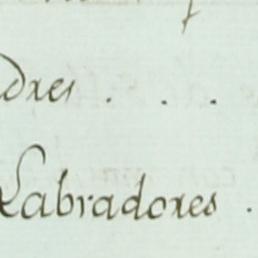 dres . . .
Labradores .